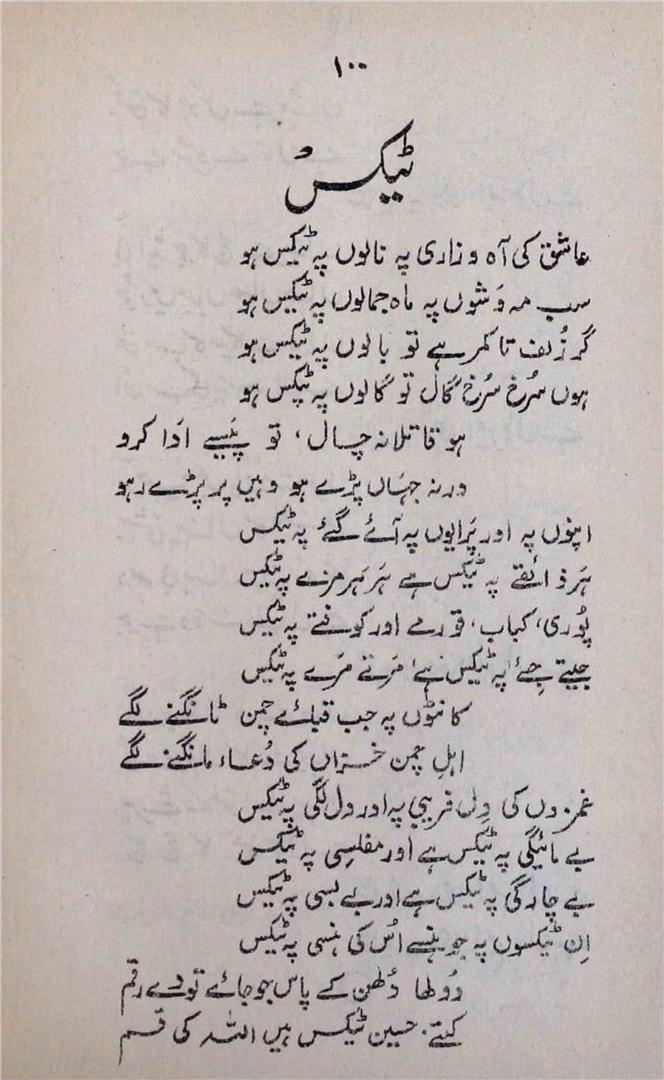 ۱۰۰
ٹیکس
عاشق کی آہ و زاری پہ نالوں پہ ٹیکس ہو
سب مہ وَشوں پہ ماہ جمالوں پہ ٹیکس ہو
گر زُلف تا کمر ہے تو بالوں پہ ٹیکس ہو
ہوں سُرخ سُرخ گال تو گالوں پہ ٹیکس ہو
ہو قاتلانہ چال، تو پَیسے اَدا کرو
ورنہ جہاں پڑے ہو وہیں پر پڑے رہو
اپنوں پہ اور پَرایوں پہ آئے گئے پہ ٹیکس
ہَر ذائقے پہ ٹیکس ہے ہَر ہَر مزے پہ ٹیکس
پُوری، کباب، قورمے اور کوفتے پہ ٹیکس
جیتے جئے پہ ٹیکس ہے، مَرتے مَرے پہ ٹیکس
کانٹوں پہ جب قبائے چمن ٹانگنے لگے
اہلِ چمن خزاں کی دُعاء مانگنے لگے
غمزوں کی دِل فریبی پہ اور دل لگی پہ ٹیکس
بے مائیگی پہ ٹیکس ہے اور مفلسِی پہ ٹیکس
بے چارگی پہ ٹیکس ہے اور بے بسی پہ ٹیکس
اِن ٹیکسوں پہ جو ہنسے اُس کی ہنسی پہ ٹیکس
دُولھا دُلھن کے پاس جو جائے تو دے رقم
کتنے حسین ٹیکس ہیں اللہ کی قسم